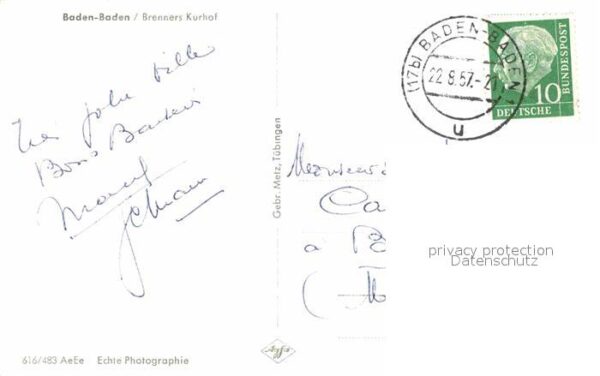 Baden-Baden / Brenners Kurhof
Très jolie ville
Bons Baisers
Gebr. Metz, Tübingen
(17b) BADEN-BADEN
22.8.57.-21
u
10
DEUTSCHE
BUNDESPOST
Monsieur
Ca
à
privacy protection
Datenschutz
Agfa
616/483 AeEe Echte Photographie